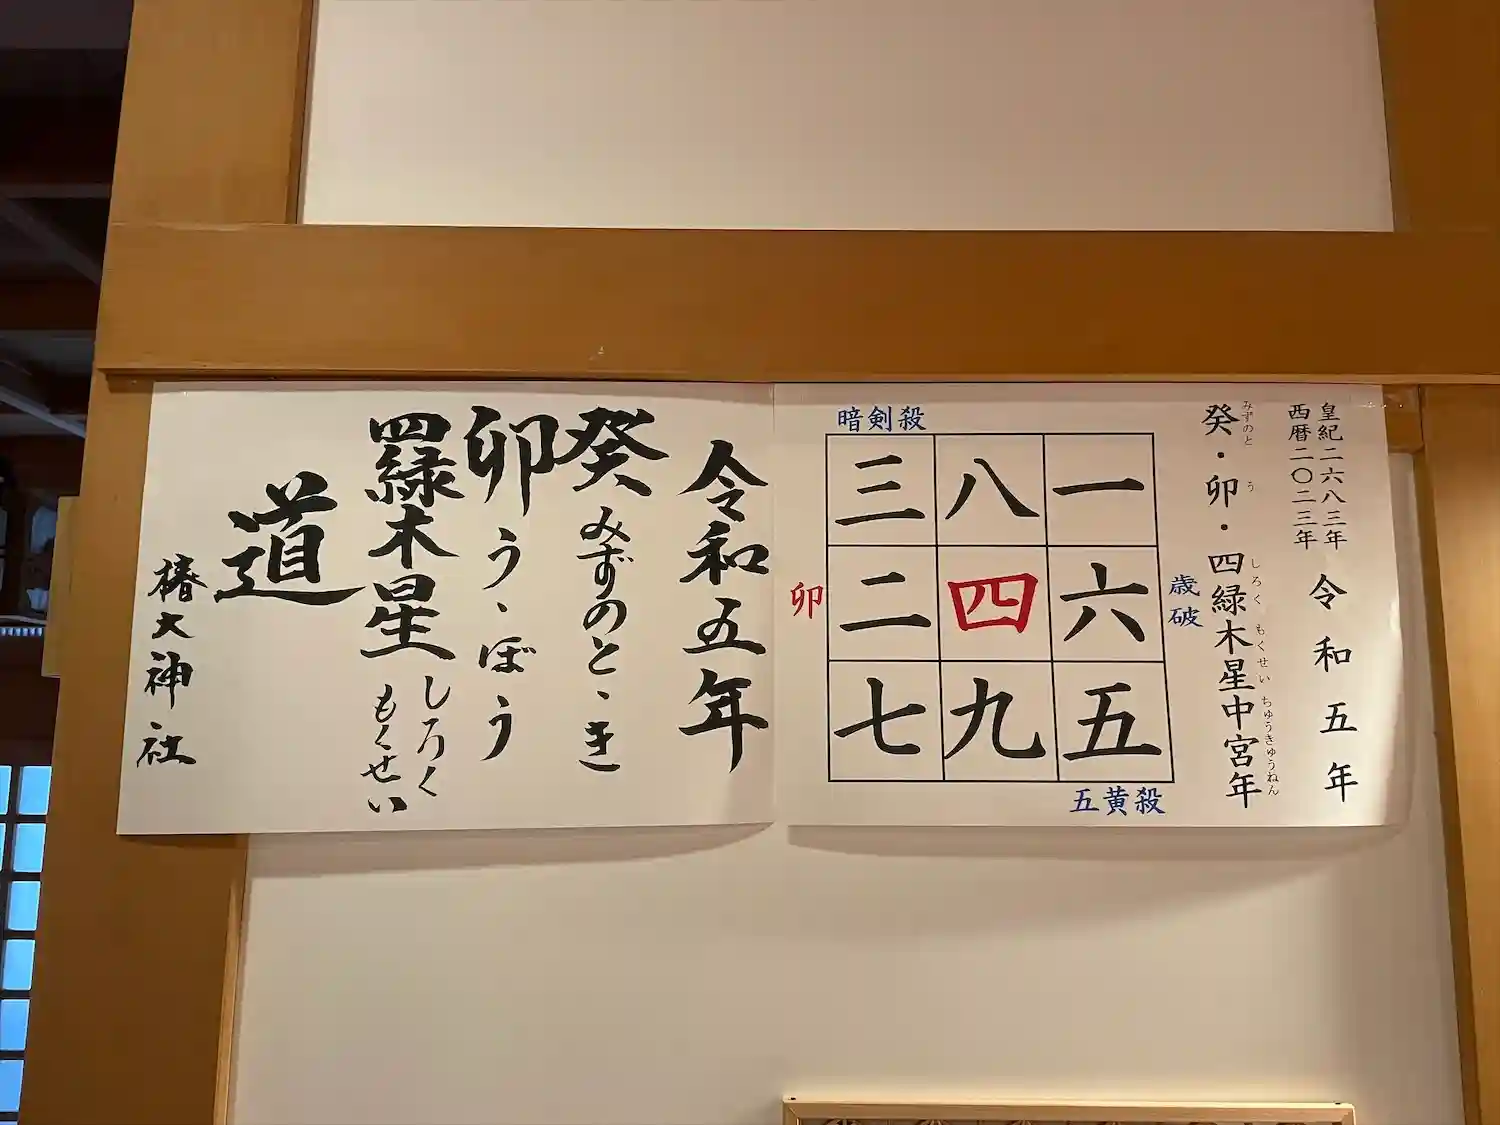 皇紀二六八三年
西暦二〇二三年
令和五年
癸・卯・四緑木星中宮年
みずのと う しろく もくせい ちゅうきゅうねん
暗剣殺
三 八 一
卯 二 四 六 歳破
七 九 五
五黄殺
令和五年
癸 みずのと、き
卯 う、ぼう
四緑木星 しろくもくせい
道
椿大神社